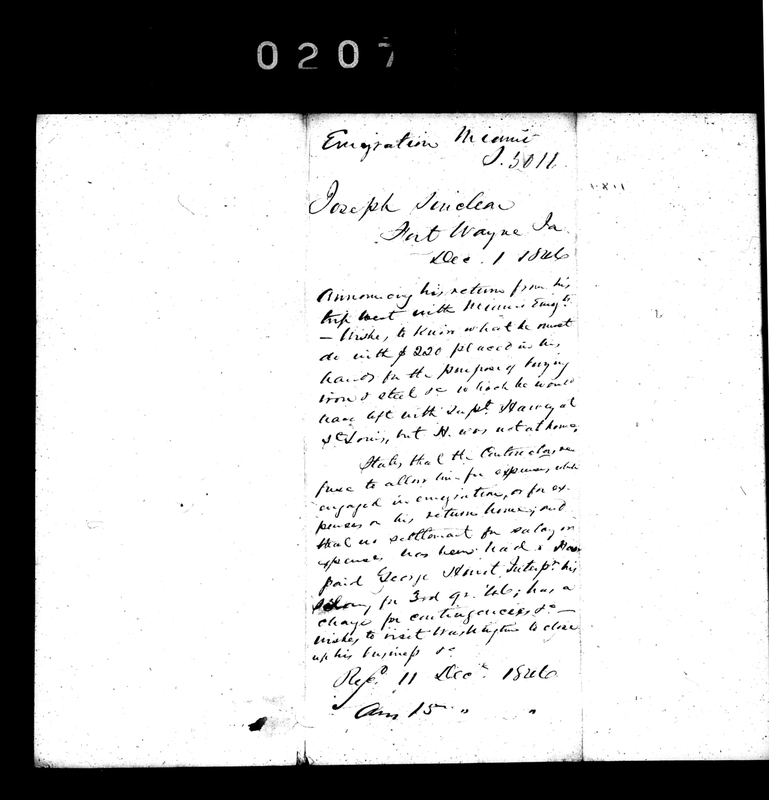 0207
Emigration Miami
S. 3011
Joseph Sinclear
Fort Wayne Ia
Dec. 1 1846
Announcing his return from his
trip west with Miami Emigts.
— Wishes to know what he must
do with $220 placed in his
hands for the purpose of buying
iron & steel &c which he would
have left with Supt. Harvey at
St Louis, but H. was not at home.
States that the Contractors re-
fuse to allow him for expenses, while
engaged in emigration, or for ex-
penses on his return home; and
that no settlement for salary or
expenses has been had & has
paid George Hunt Interpr. his
salary for 3rd qr. '46; has a
charge for contingencies &c —
wishes to visit Washington to close
up his business &c
Recd 11 Decr. 1846
Ans 15 " "